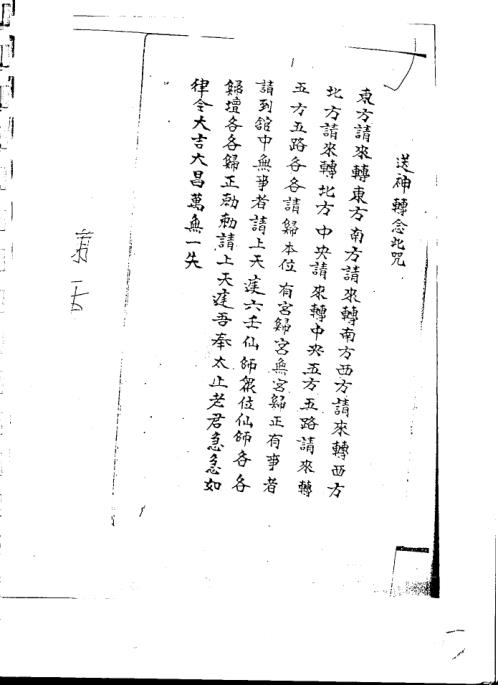 送神轉念此咒
東方請來轉東方南方請來轉南方西方請來轉西方
北方請來轉北方中央請來轉中央五方五路請來轉
五方五路各各請歸本位有宮歸宮無宮歸正有事者
請到舘中無事者請上天遅六壬仙師眾位仙師各各
歸壇各各歸正勅勅請上天遅吾奉太上老君急急如
律令大吉大昌萬無一失